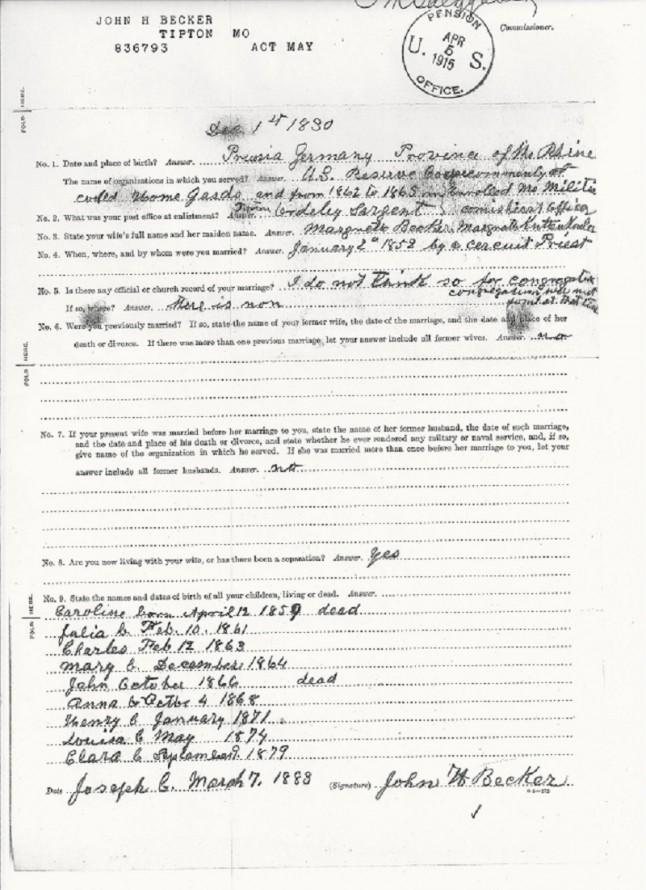 JOHN H BECKER
TIPTON MO
836793 ACT MAY
Commissioner.
PENSION
U. S.
APR
5
1915
OFFICE.
FOLD HERE.
Dec 1st 1830
No. 1. Date and place of birth? Answer. Prussia Germany Province of the Rhine
The name of organizations in which you served? Answer. U.S. Reserve at
called Home Gaods and from 1862 to 1865 in Enrolled Mo Militia
No. 2. What was your post office at enlistment? Answer. Tipton Ordeley Sargent
No. 3. State your wife's full name and her maiden name. Answer. Margrete Becker
No. 4. When, where, and by whom were you married? Answer. January 2d 1858 by a cercuit Priest
No. 5. Is there any official or church record of your marriage? Answer. I do not think so for
congregation
If so, where? Answer. there is non
No. 6. Were you previously married? If so, state the name of your former wife, the date of the marriage, and the date and place of her
death or divorce. If there was more than one previous marriage, let your answer include all former wives. Answer. no
FOLD HERE.
No. 7. If your present wife was married before her marriage to you, state the name of her former husband, the date of such marriage,
and the date and place of his death or divorce, and state whether he ever rendered any military or naval service, and, if so,
give name of the organization in which he served. If she was married more than once before her marriage to you, let your
answer include all former husbands. Answer. no
No. 8. Are you now living with your wife, or has there been a separation? Answer. yes
No. 9. State the names and dates of birth of all your children, living or dead. Answer.
FOLD HERE.
Caroline born April 12 1859 dead
Julia C. Feb. 10. 1861
Charles Feb 12 1863
Mary C. December 1864
John October 1866 dead
Anna C Octbr 4 1868
Henry C January 1871
Louisa C May 1874
Clara C September 9. 1879
Date Joseph C. March 7. 1883 (Signature) John H Becker